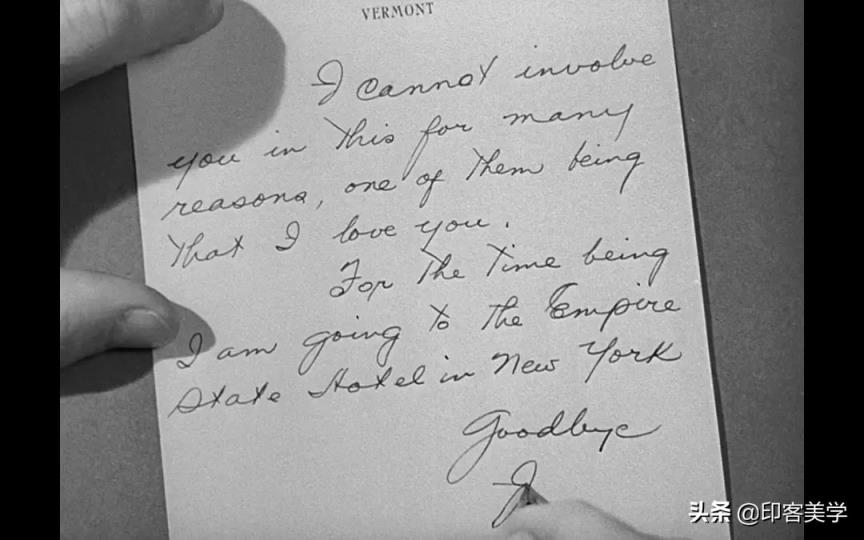 VERMONT
I cannot involve
you in this for many
reasons, one of them being
that I love you.
For the time being
I am going to the Empire
State Hotel in New York
Goodbye
J
头条 @印客美学